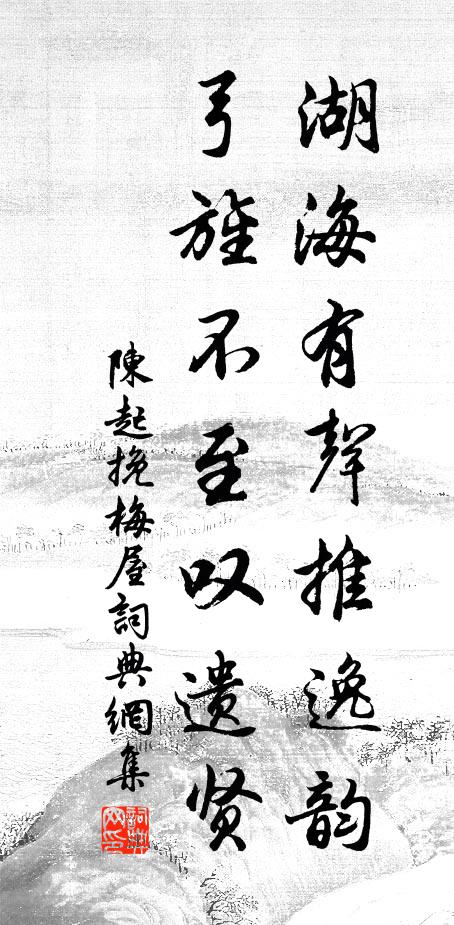 湖海有聲推逸韵
弓旌不至叹遗贤
陳起挽梅屋詞典網集